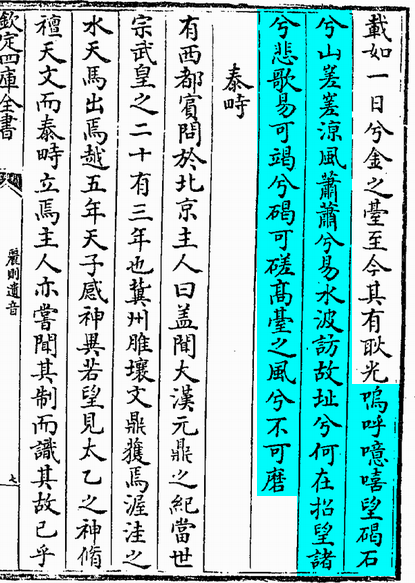 載如一日兮金之臺至今其有耿光嗚呼噫嘻望碣石
兮山嵳嵳涼風蕭蕭兮易水波訪故址兮何在招望諸
兮悲歌易可竭兮碣可磋髙臺之風兮不可磨
泰畤
有西都賓問於北京主人曰蓋聞大漢元鼎之紀當世
宗武皇之二十有三年也冀州脽壤文鼎獲焉渥洼之
水天馬出焉越五年天子感神異若望見太乙之神脩
䄠天文而泰畤立焉主人亦嘗聞其制而識其故已乎
欽定四庫全書
麗則遺音
七